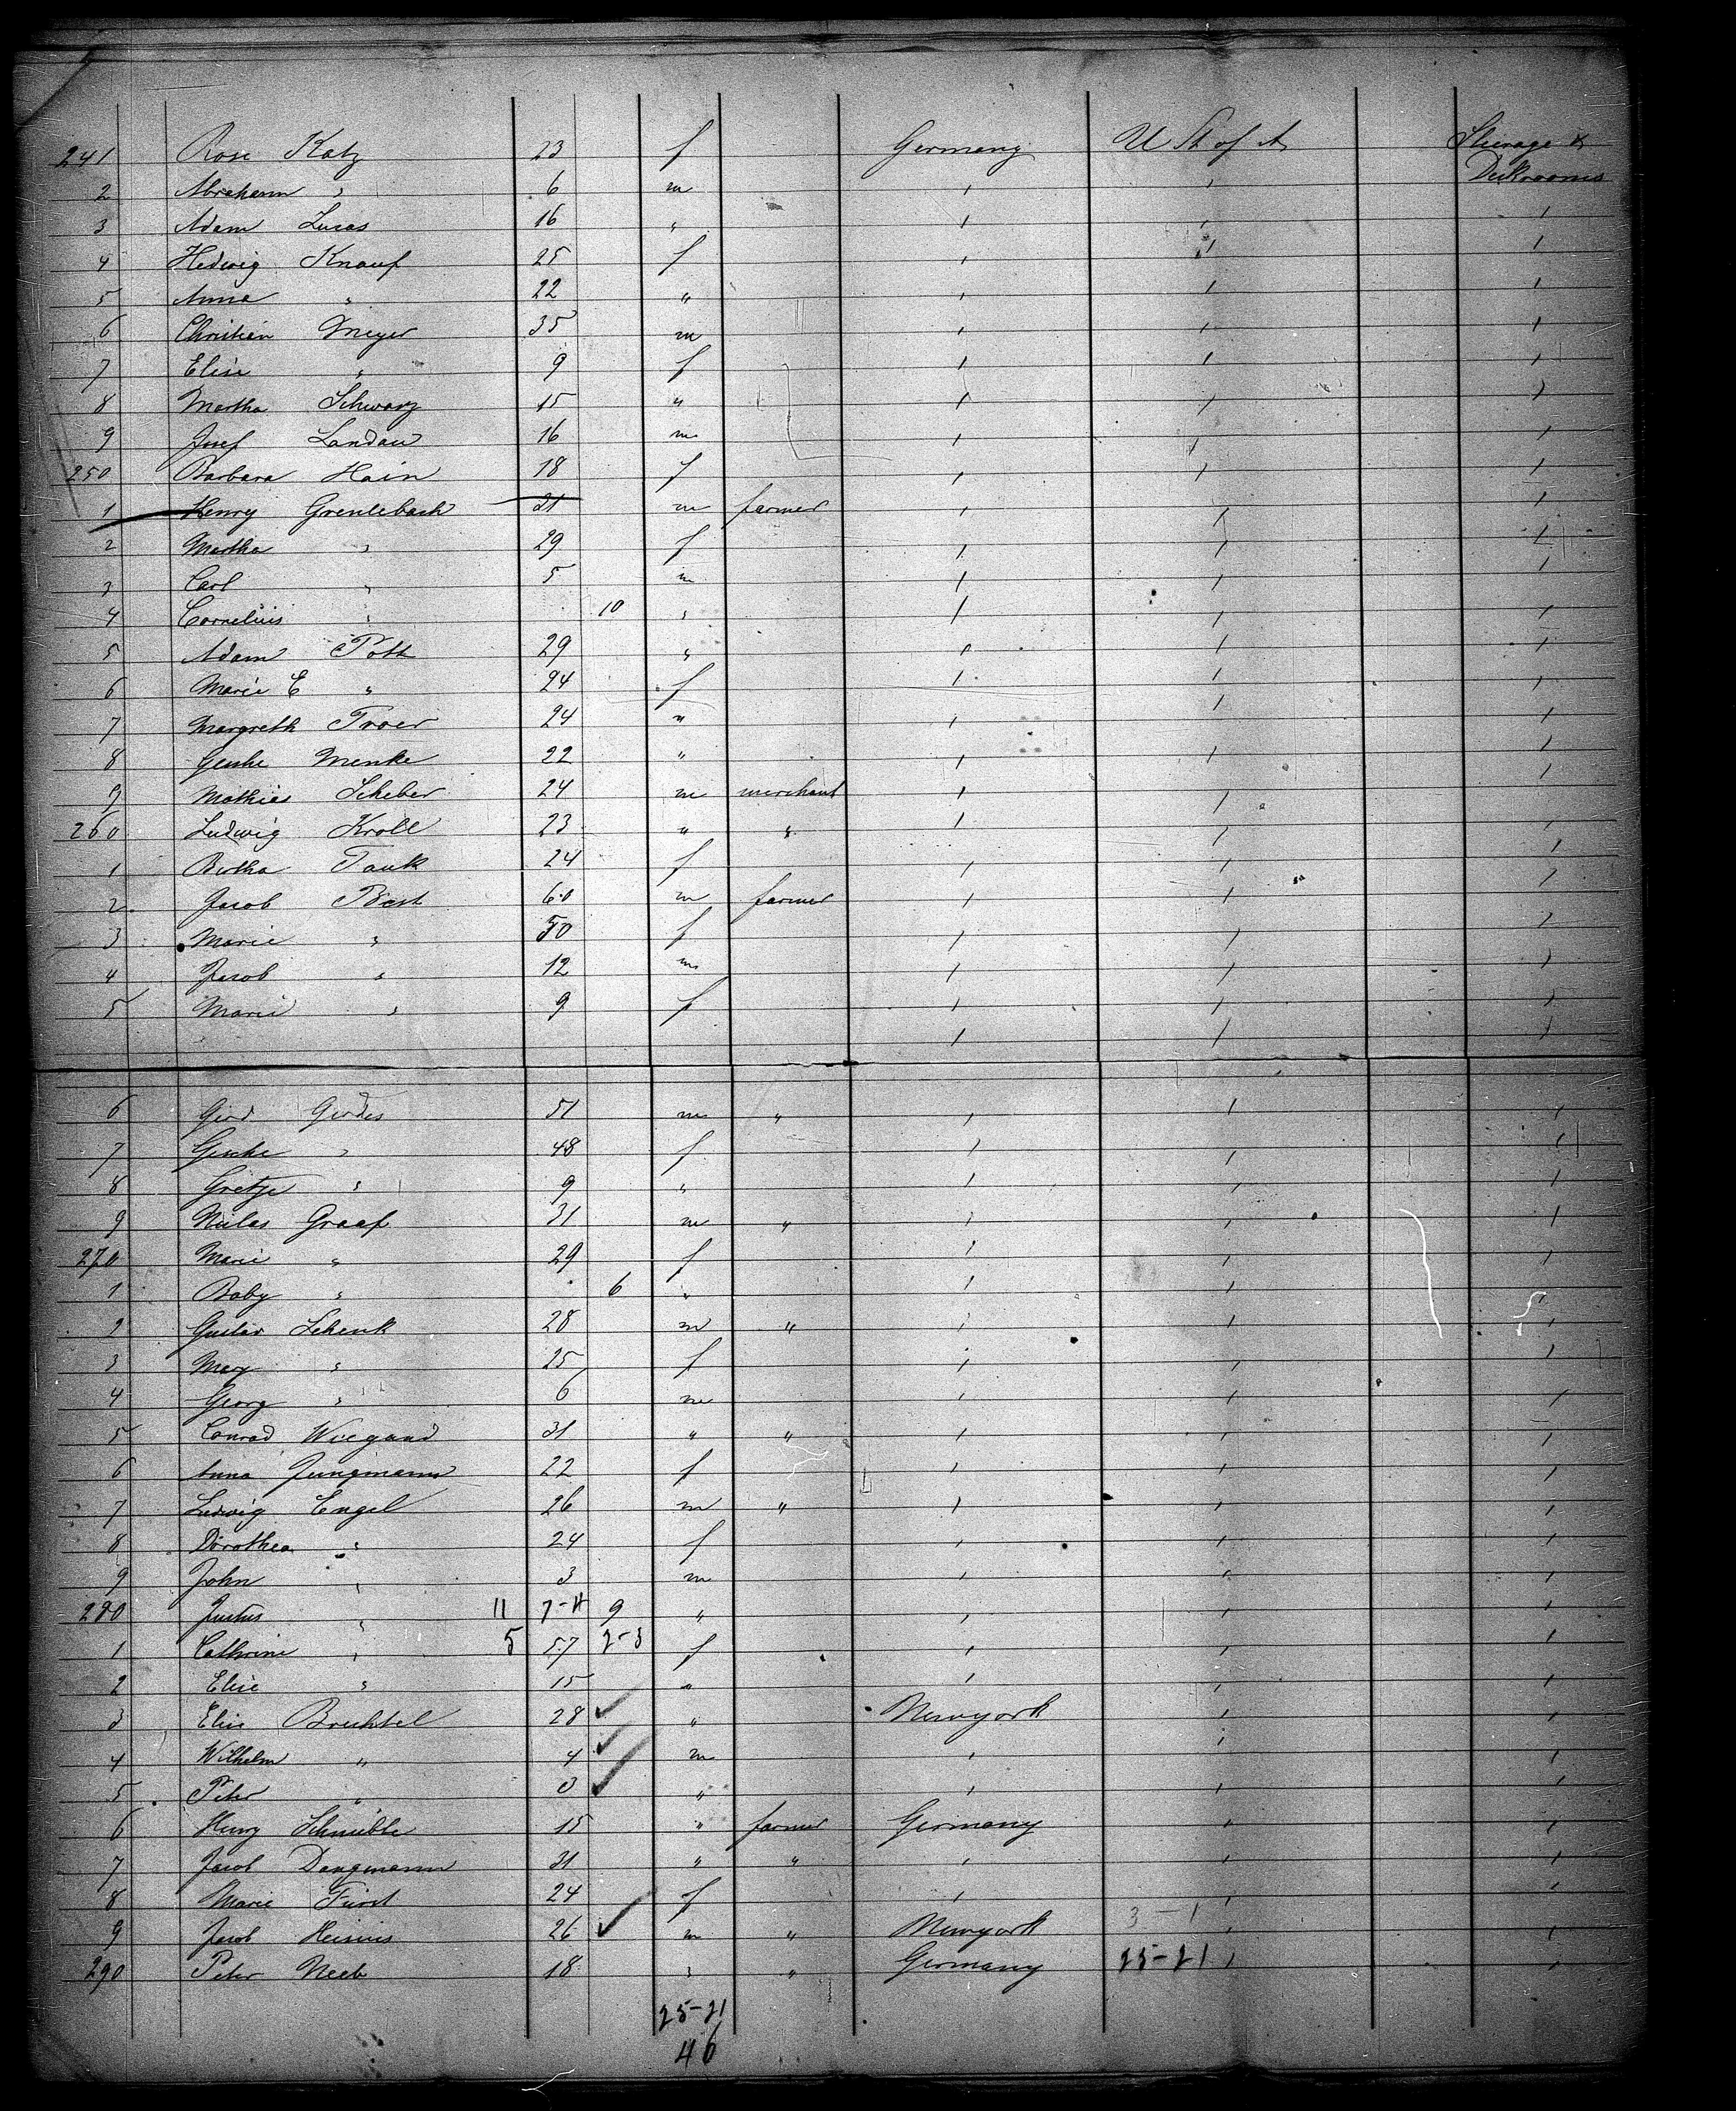 241 Rosi Katz 23 f Germany U St of A Steerage &
2 Abraham " 6 m " " Deckrooms
3 Adam Lucas 16 " " " "
4 Hedwig Knauf 25 f " " "
5 Anna " 22 " " " "
6 Christian Meyer 35 m " " "
7 Elise " 9 f " " "
8 Martha Schwarz 15 " " " "
9 Josef Landau 16 m " " "
250 Barbara Hain 18 f " " "
1 Henry Grentebach 21 m farmer " " "
2 Martha " 29 f " " "
3 Carl " 5 m " " "
4 Cornelius " 10 " " " "
5 Adam Pott 29 " " " "
6 Marie E " 24 f " " "
7 Margreth Troer 24 " " " "
8 Gesche Menke 22 " " " "
9 Mathies Scheber 24 m merchant " " "
260 Ludwig Kroll 23 " " " " "
1 Bertha Tauk 24 f " " "
2 Jacob Best 60 m farmer " " "
3 Marie " 50 f " " "
4 Jacob " 12 m " " "
5 Marie " 9 f " " "
" " "
6 Gerd Gerdes 51 m " " " "
7 Gesche " 48 f " " "
8 Gretje " 9 " " " "
9 Graaf 31 m " " " "
270 Marie " 29 f " " "
1 Baby " 6 " " " "
2 Gustav Schenk 28 m " " " "
3 Mary " 25 f " " "
4 Georg " 6 m " " "
5 Conrad Wiegand 31 " " " " "
6 Anna Jungmann 22 f " " "
7 Ludwig Engel 26 m " " " "
8 Dorothea " 24 f " " "
9 John " 3 m " " "
280 Justus " 11 7-11 9 " " " "
1 Cathrine " 5 57 2-3 f " " "
2 Elise " 15 " " " "
3 Elis Brechtel 28 " Newyork " "
4 Wilhelm " 4 m " " "
5 Peter " 3 " " " "
6 Henry 15 " farmer Germany " "
7 Jacob Dangmann 31 " " " " "
8 Marie Fürst 24 f " " "
9 Jacob 26 m " Newyork 3-1 " "
290 Peter Neeb 18 " " Germany 25-21 " "
25-21
46